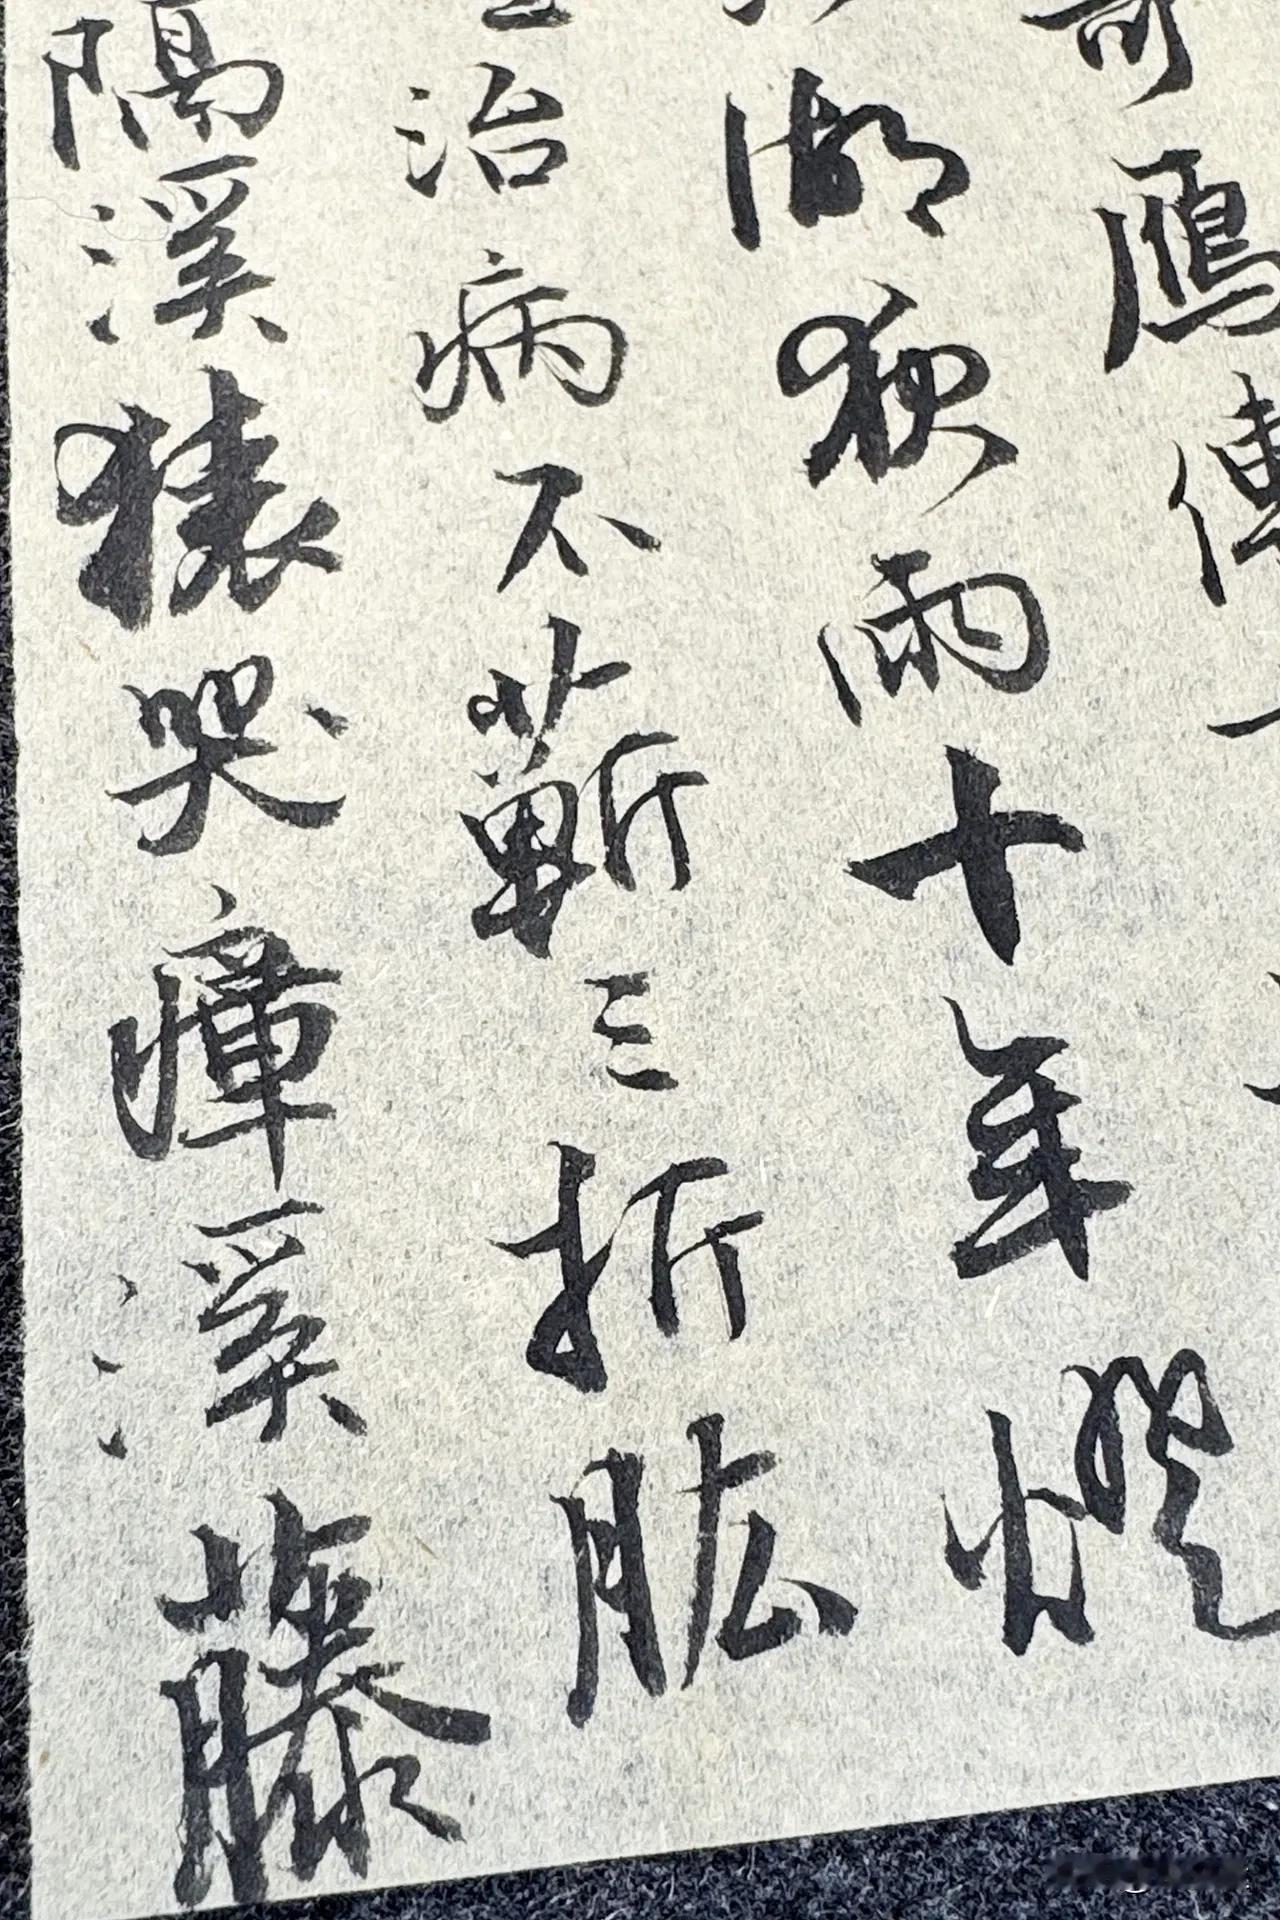 寄鴈傳
湖夜雨十年燈
治病不蘄三折肱
隔溪猿哭瘴溪藤